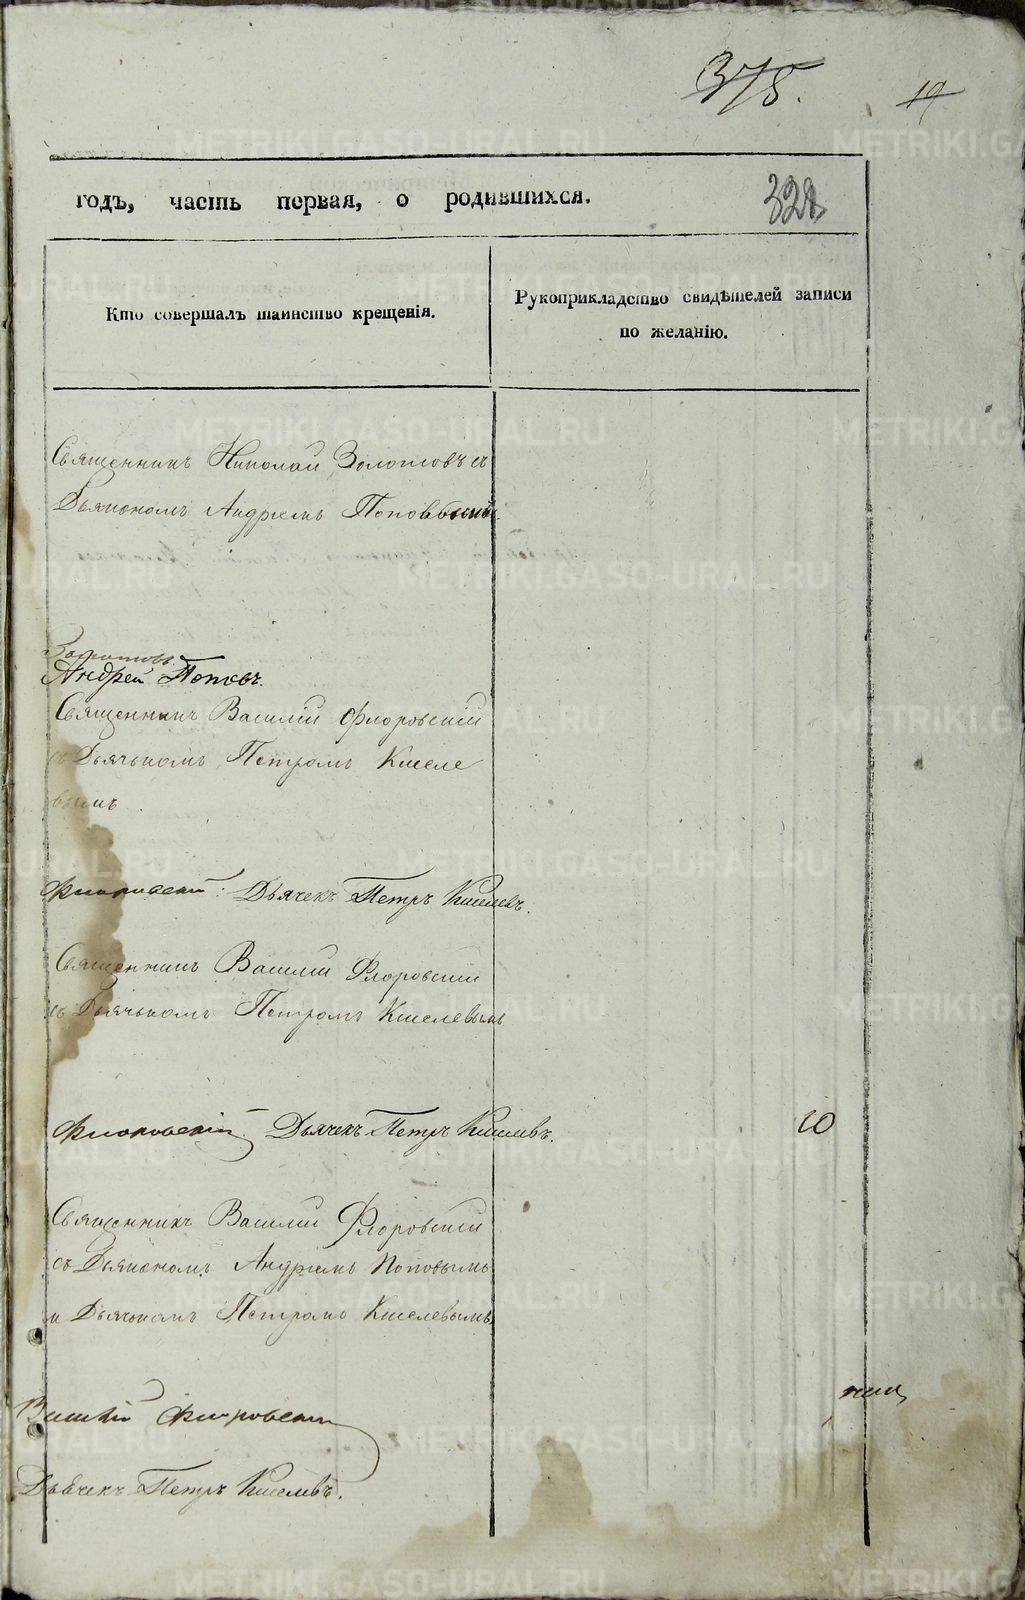 375.
19
годъ, часть первая, о родившихся.
328
Кто совершалъ таинство крещенія.
Рукоприкладство свидѣтелей записи
по желанію.
Священникъ Николай Золотовъ съ
Дьякономъ Андреемъ Поповымъ
Золотовъ
Андрей Поповъ.
Священникъ Василій Флоровскій
съ Дьячькомъ Петромъ Киселе
вымъ
Флоровскій: Дьячекъ Петръ Киселевъ.
Священникъ Василій Флоровскій
съ Дьячькомъ Петромъ Киселевымъ
Флоровскій Дьячекъ Петръ Киселевъ.
10
Священникъ Василій Флоровскій
съ Дьякономъ Андреемъ Поповымъ
и Дьячькомъ Петромъ Киселевымъ
Василій Флоровскій
Дьячекъ Петръ Киселевъ.
METRIKI.GASO-URAL.RU